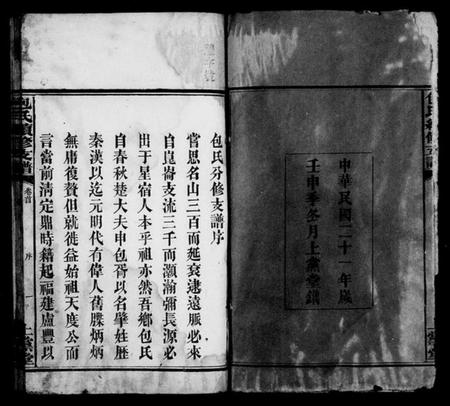 中華民國二十一年歲
壬申季冬月上黨堂鐫
包氏分修支譜序
嘗思名山三百而延袤逮遠脈必來
自崑崙支流三千而灝瀚彌長源必
出于星宿人本乎祖亦然吾鄉包氏
自春秋楚大夫申包胥以名肇姓歷
秦漢以迄元明代有偉人舊牒炳炳
無庸復贅但就徙益始祖天度公而
言當前清定鼎時籍起福建盧豐以
包氏續修支譜
卷首
序
一
上黨堂